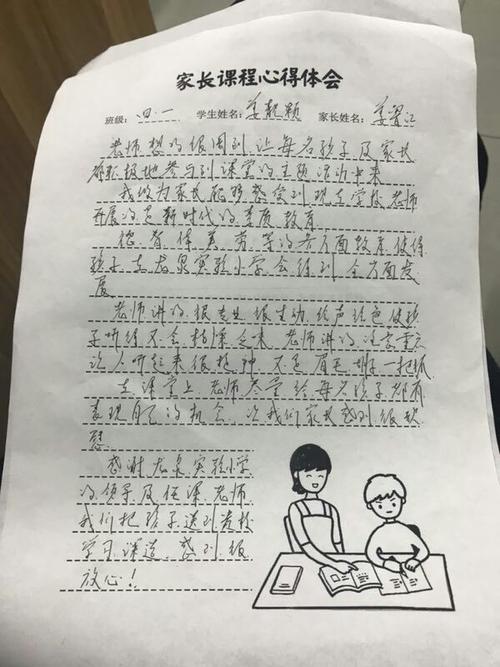 家长课程心得体会
班级: 四.一 学生姓名: 姜靓颖 家长姓名: 姜
老师想的很周到,让每名孩子及家长
都积极地参与到课堂的主题活动中来
我做为家长能够感受到现在学校老师
开展的是新时代的素质教育
德、智、体、美、劳、等的各方面教育,使得
孩子在龙泉实验小学会得到全方面发
展
老师讲的很专业很生动,绘声绘色使孩
子听得不会枯燥乏味,老师讲的注重重点
让人听起来很精神,不是眉毛胡子一把抓
在课堂上老师尽量给每名孩子都有
表现自己的机会,令我们家长感到很欣
慰
感谢龙泉实验小学
的领导及任课老师
我们把孩子送到贵校
学习深造,感到很
放心!